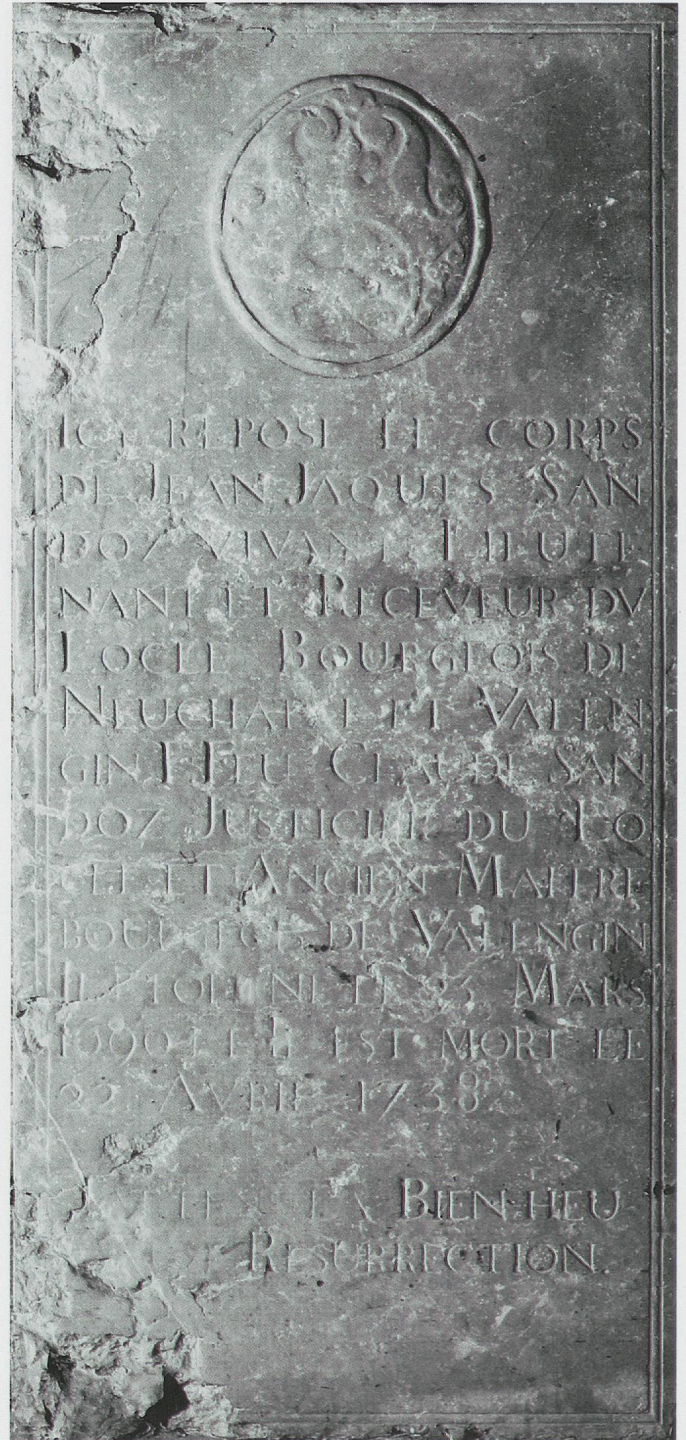 ICI REPOSE LE CORPS
DE JEAN JAQUES SAN
DOZ VIVANT LIEUTE
NANT ET RECEVEUR DV
LOCLE BOURGEOIS DE
NEUCHATEL ET VALEN
GIN F FEU CLAUDE SAN
DOZ JUSTICIER DU LO
CLE ET ANCIEN MAITRE
BOURGEOIS DE VALENGIN
IL ETOIT NE LE 23 MARS
1690 ET IL EST MORT LE
22 AVRIL 1738
LA BIEN-HEU
RESURRECTION.